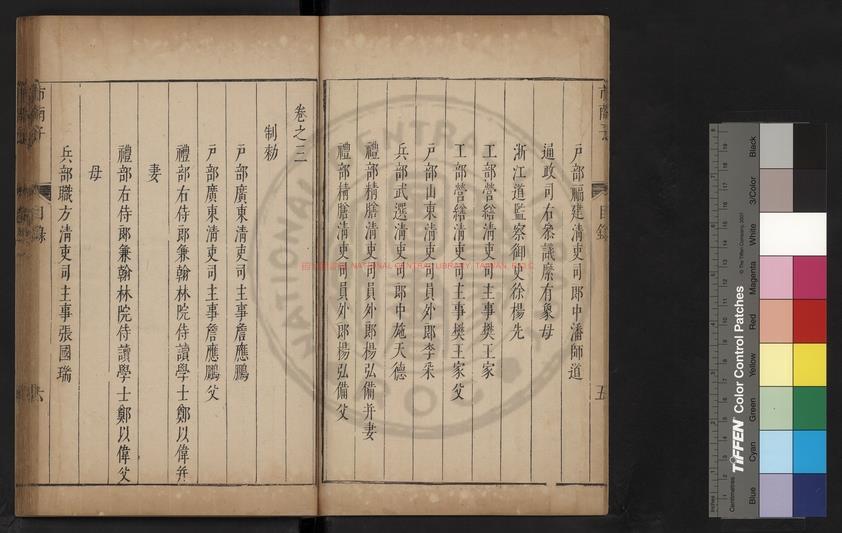 戶部福建清吏司郎中潘師道
通政司右叅議麋有象母
浙江道監察御史徐楊先
工部營繕清吏司主事樊王家
工部營繕清吏司主事樊王家父
戶部山東清吏司員外郎李朵
兵部武選清吏司郎中施天德
禮部精膳清吏司員外郎楊弘備并妻
禮部精膳清吏司員外郎楊弘備父
目錄
五
卷之三
制勑
戶部廣東清吏司主事詹應鵬
戶部廣東清吏司主事詹應鵬父
禮部右侍郎兼翰林院侍讀學士鄭以偉并
妻
禮部右侍郎兼翰林院侍讀學士鄭以偉父
母
兵部職方清吏司主事張國瑞
目錄
六
NATIONAL CENTRAL LIBRARY, TAIWAN, R.O.C.
TIFFEN Color Control Patches
© The Tiffen Company, 2007
Centimetres
Inches
Blue
Cyan
Green
Yellow
Red
Magenta
White
3/Color
Black